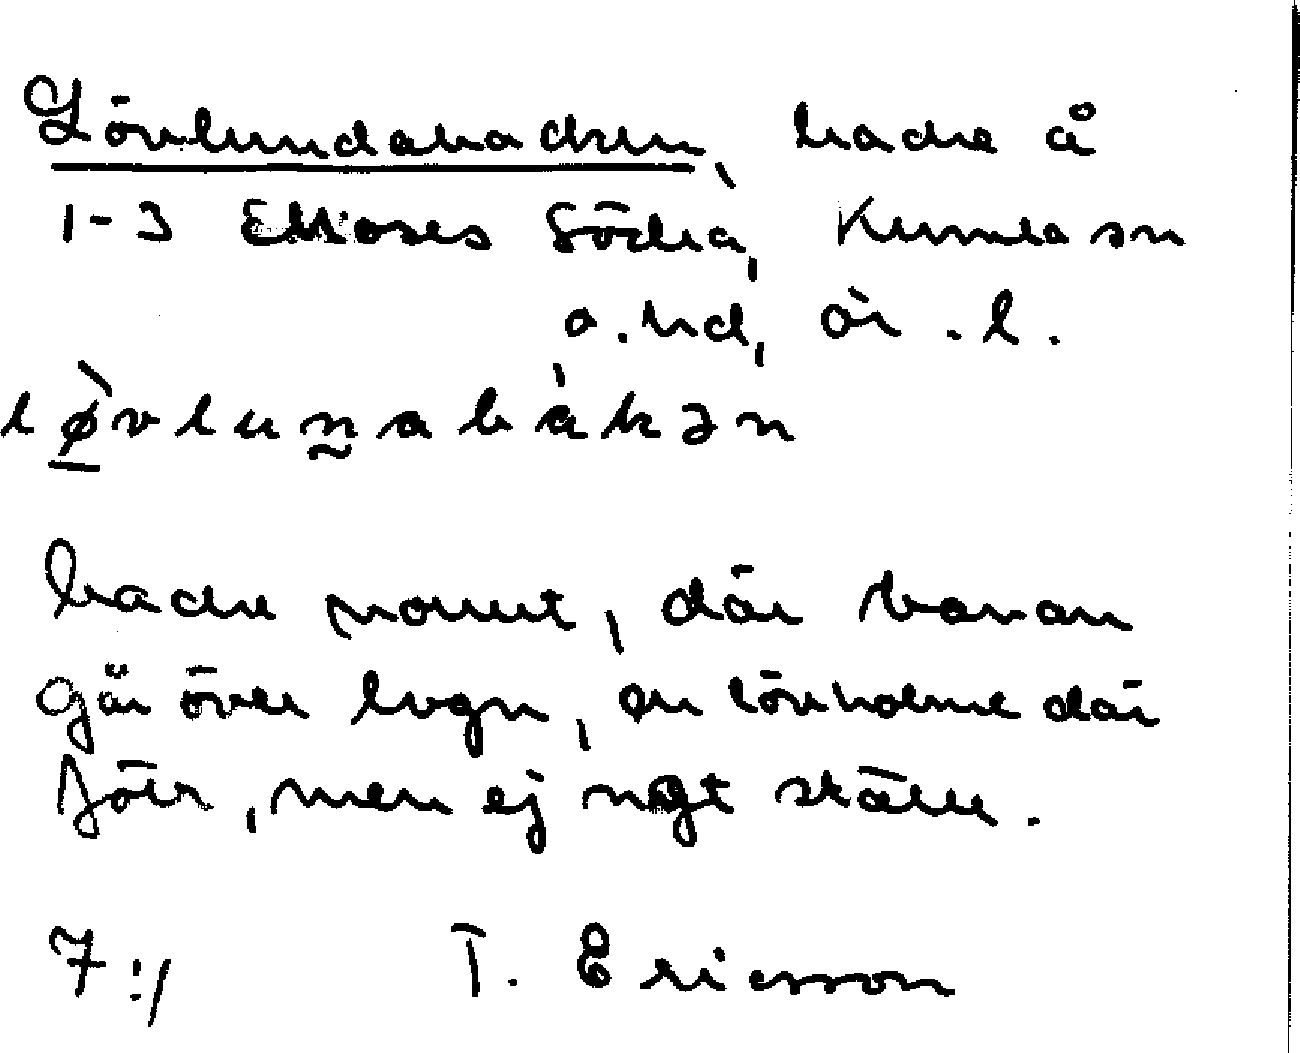 Lövlundabacken, backe å
1-3 Ekioses Södra, Kumla sn
o. hd, Ör. l.
løvlunabàkən
backe norrut, där banan
går över lvgn, en lövholme där
förr, men ej ngt ställe.
7:/ T. Ericsson